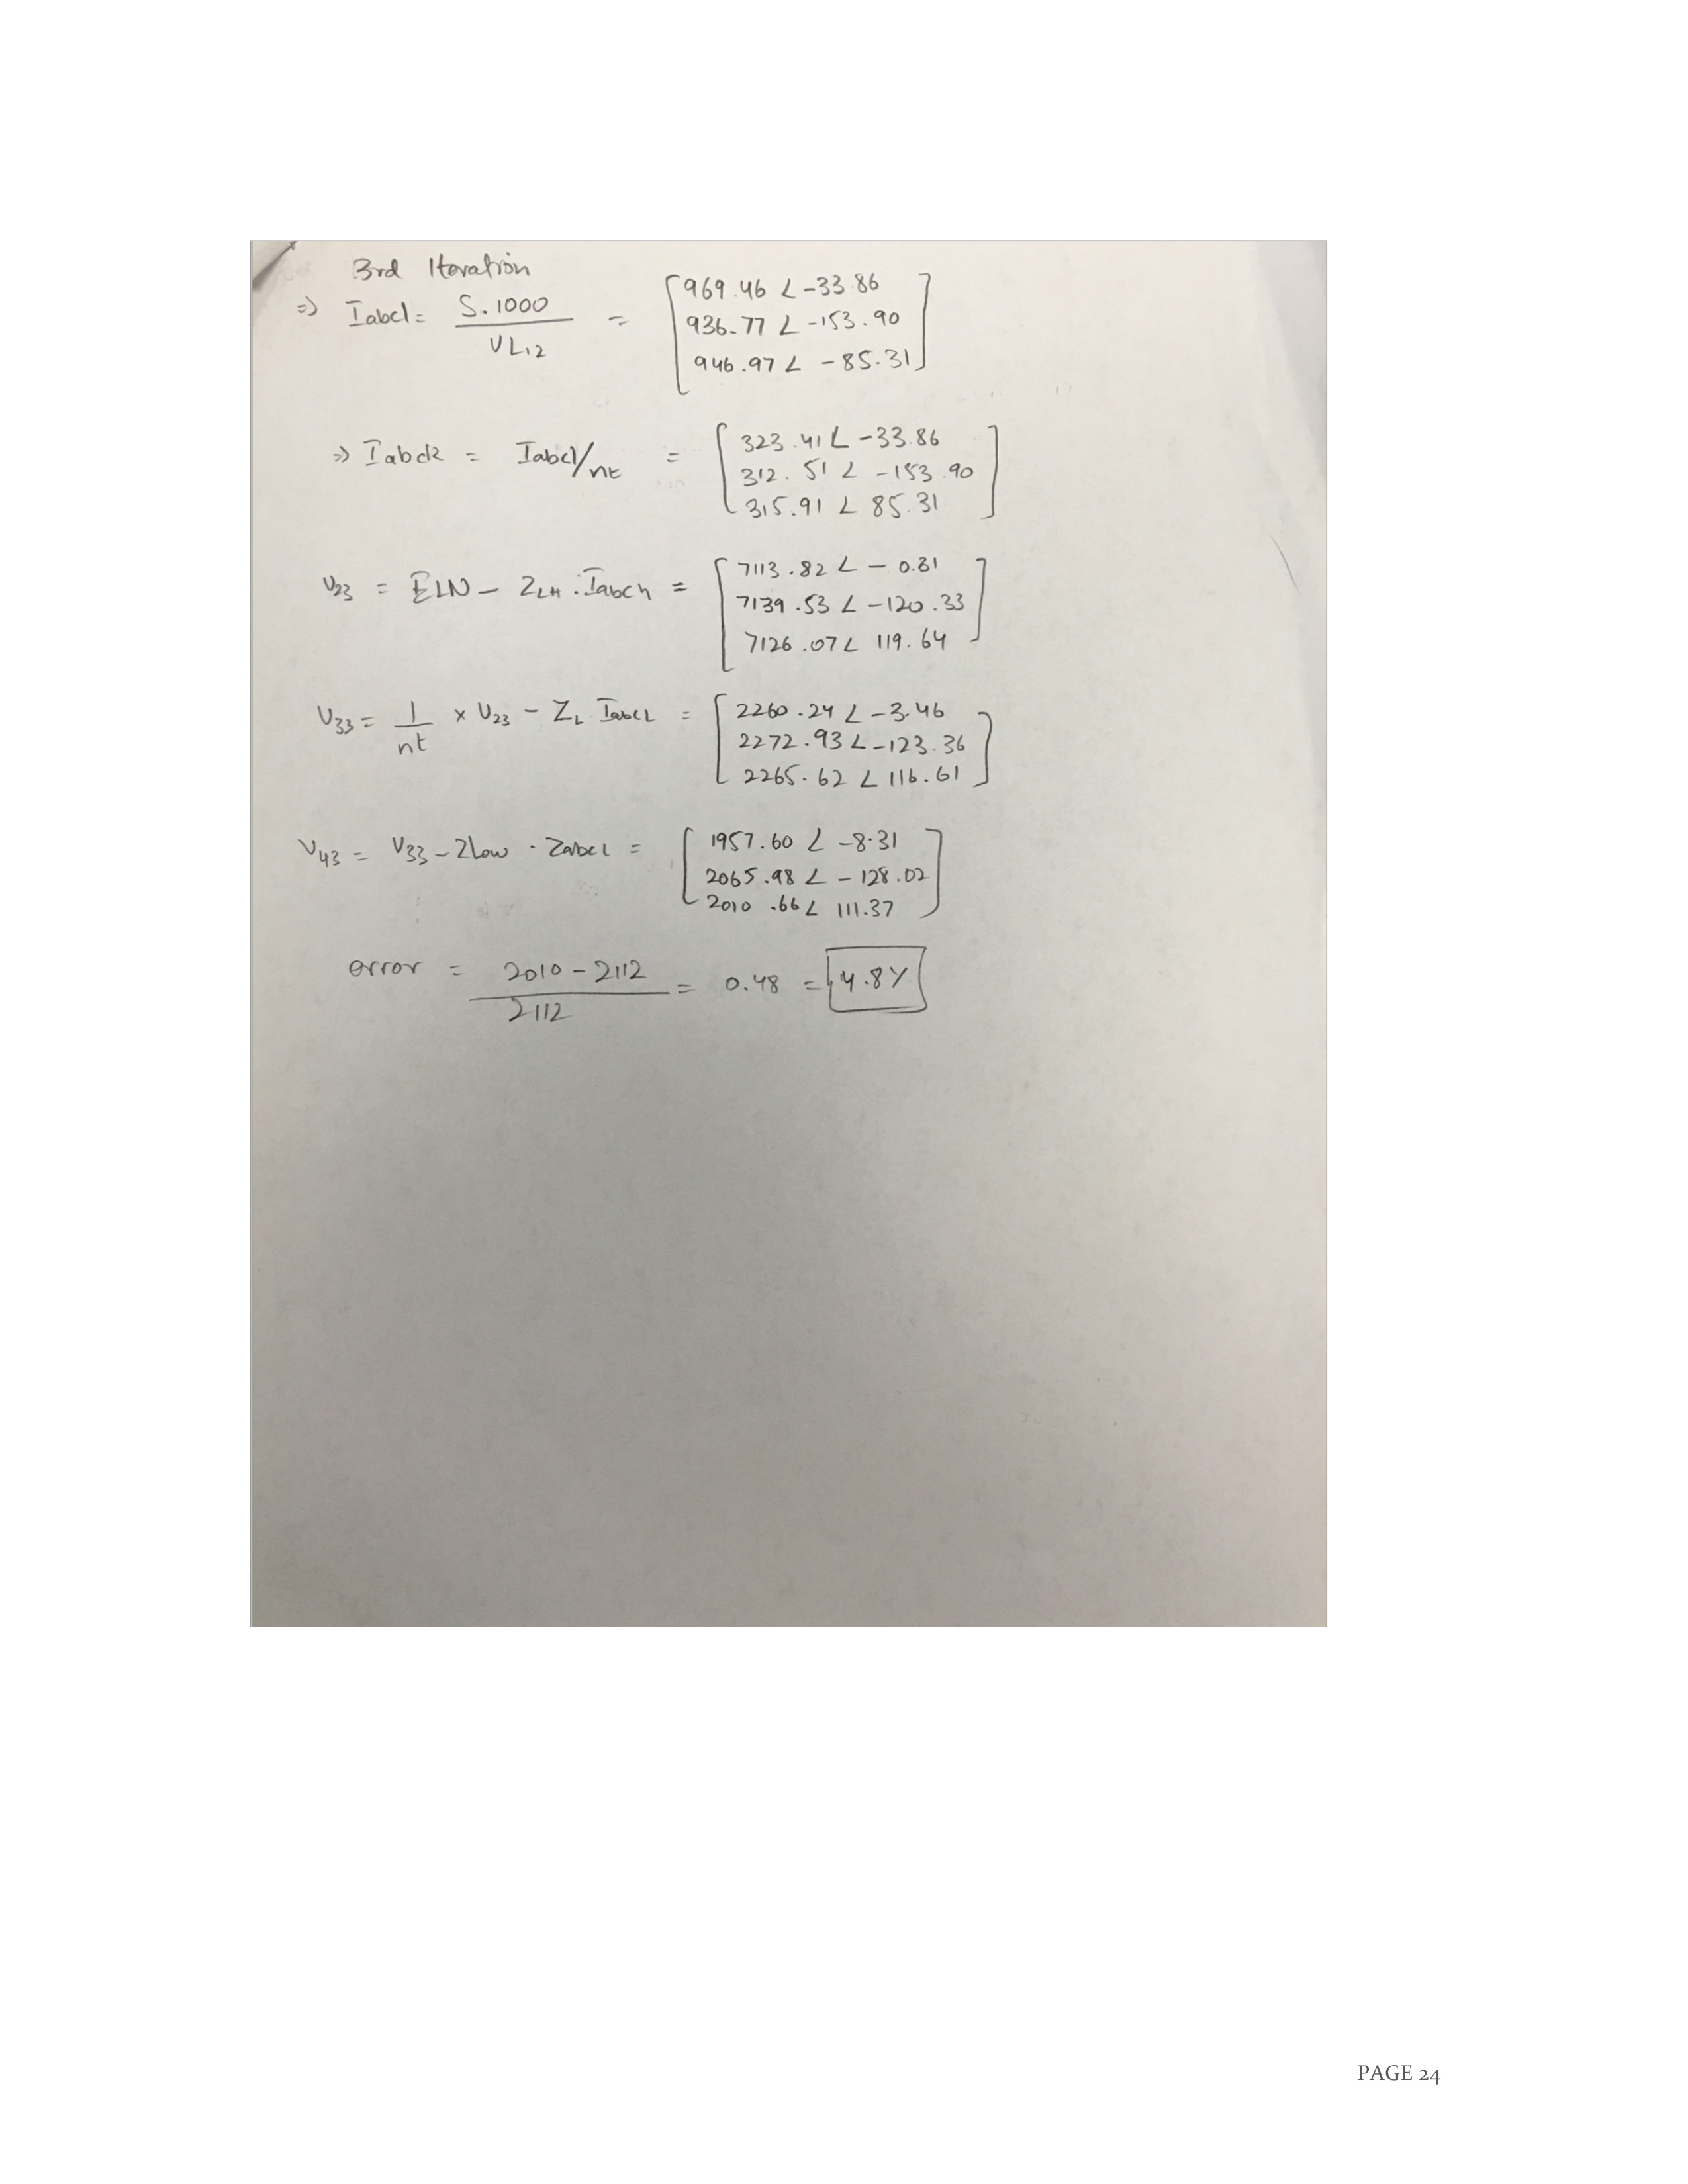 3rd Iteration
⇒ Iabcl = S.1000 / VL12 = [969.46 ∠ -33.86
936.77 ∠ -153.90
946.97 ∠ -85.31]
⇒ Iabck = Iabcl/nt = [323.41 ∠ -33.86
312.51 ∠ -153.90
315.91 ∠ 85.31]
V23 = ELN - ZLH . Iabch = [7113.82 ∠ - 0.31
7139.53 ∠ -120.33
7126.07 ∠ 119.64]
V33 = 1/nt x V23 - ZL IabcL = [2260.24 ∠ -3.46
2272.93 ∠ -123.36
2265.62 ∠ 116.61]
V43 = V33 - Zlow . Zabcl = [1957.60 ∠ -8.31
2065.98 ∠ - 128.02
2010.66 ∠ 111.37]
error = 2010 - 2112 / 2112 = 0.48 = 4.8%
PAGE 24